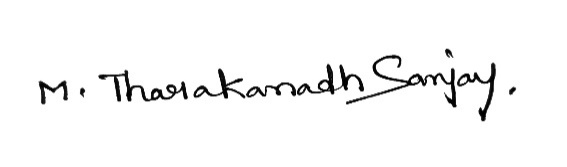 M. Tharakanadh Sanjay.